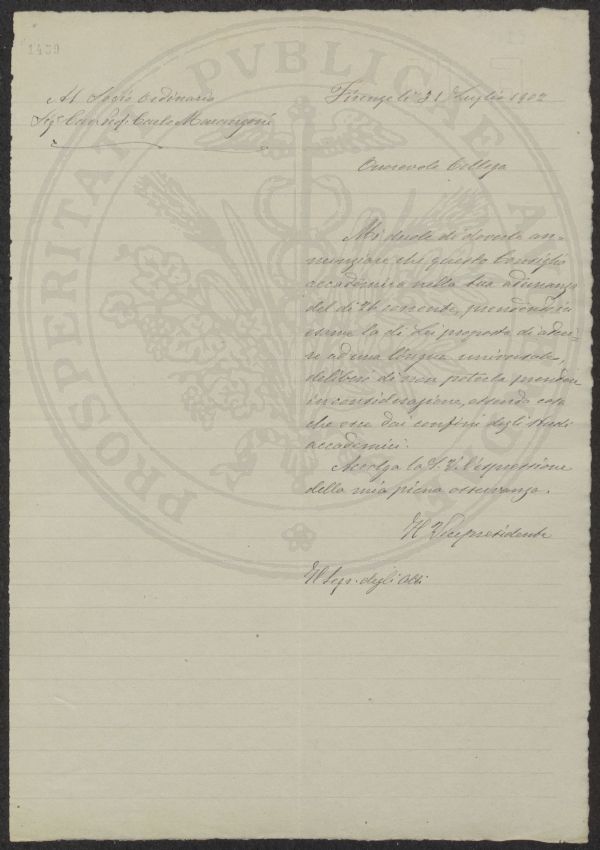 1439
Al Socio Ordinario
Sigr. Cav. Prof. Carlo Marangoni
Firenze li 31 Luglio 1902
Onorevole Collega
Mi duole di doverle an-
nunziare che questo Consiglio
accademico nella sua adunanza
del dì 26 corrente, prendendo in
esame la di Lei proposta di aderi-
re ad una lingua universale,
deliberò di non poterla prendere
in considerazione, essendo cosa
che esce dai confini degli studi
accademici.
Accolga la S. V. l'espressione
della mia piena osservanza.
Il Vicepresidente
Il Segr. degli Atti
PROSPERITATI PVBLICAE A